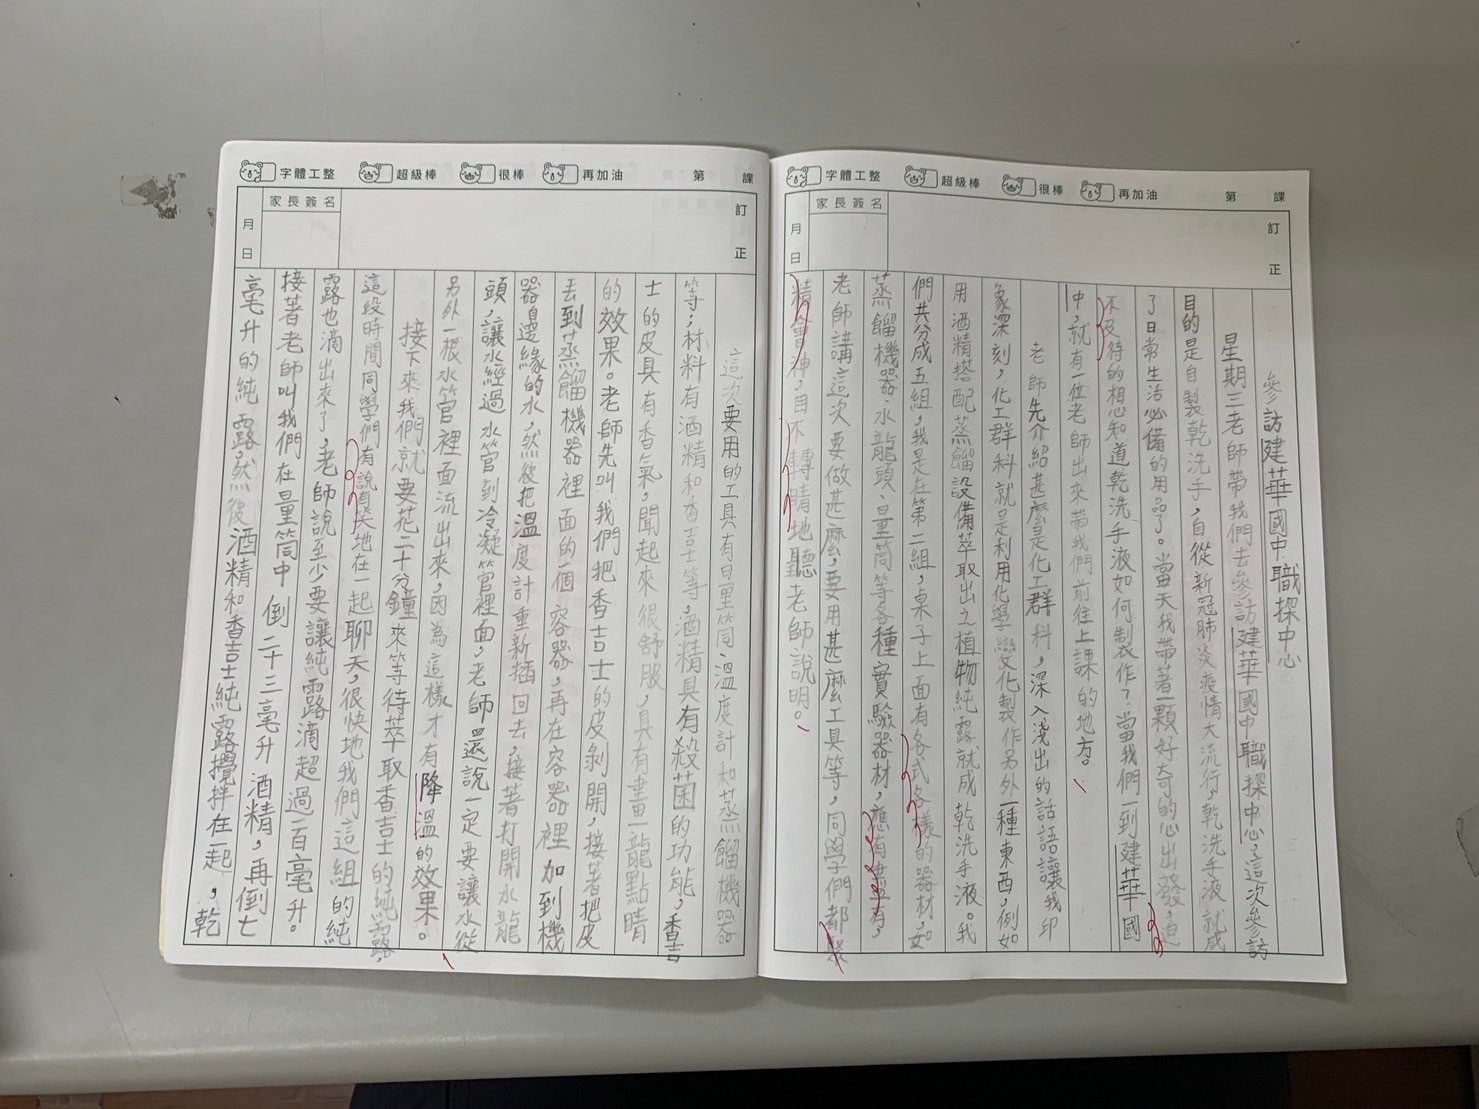 字體工整 超級棒 很棒 再加油 第 課
家長簽名 訂正
月 日
參訪建華國中職探中心
星期三老師帶我們去參訪建華國中職探中心,這次參訪
目的是自製乾洗手,自從新冠肺炎疫情大流行,乾洗手液就成
了日常生活必備的用品了。當天我帶著一顆好奇的心出發,迫
不及待的想知道乾洗手液如何製作?當我們一到建華國
中,就有一位老師出來帶我們前往上課的地方。
老師先介紹甚麼是化工群科,深入淺出的話語讓我印
象深刻,化工群科就是利用化學變化製作另外一種東西,例如
用酒精搭配蒸餾設備萃取出之植物純露就成乾洗手液。我
們共分成五組,我是在第二組,桌子上面有各式各樣的器材,如
蒸餾機器、水龍頭、量筒等各種實驗器材,應有盡有,
老師講這次要做甚麼,要用甚麼工具等,同學們都聚
精會神,目不轉睛地聽老師說明。
字體工整 超級棒 很棒 再加油 第 課
家長簽名 訂正
月 日
這次要用的工具有量筒、溫度計和蒸餾機器
等,材料有酒精和香吉士等,酒精具有殺菌的功能,香吉
士的皮具有香氣,聞起來很舒服,具有畫龍點睛
的效果。老師先叫我們把香吉士的皮剝開,接著把皮
丟到蒸餾機器裡面的一個容器,再在容器裡加到機
器邊緣的水,然後把溫度計重新插回去,接著打開水龍
頭,讓水經過水管到冷凝管裡面,老師還說一定要讓水從
另外一根水管裡面流出來,因為這樣才有降溫的效果。
接下來我們就要花二十分鐘來等待萃取香吉士的純露,
這段時間同學們有說有笑地在一起聊天,很快地我們這組的純
露也滴出來了,老師說至少要讓純露滴超過一百毫升。
接著老師叫我們在量筒中倒二十三毫升酒精,再倒七
毫升的純露,然後酒精和香吉士純露攪拌在一起,乾